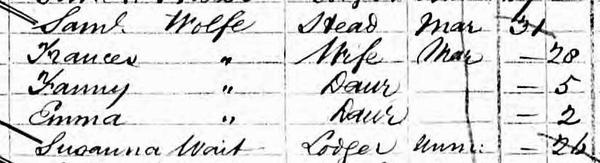 Saml Wolfe Head Mar 31
Frances " Wife Mar — 28
Fanny " Daur — 5
Emma " Daur — 2
Susanna Wait Lodger Unm: — 26